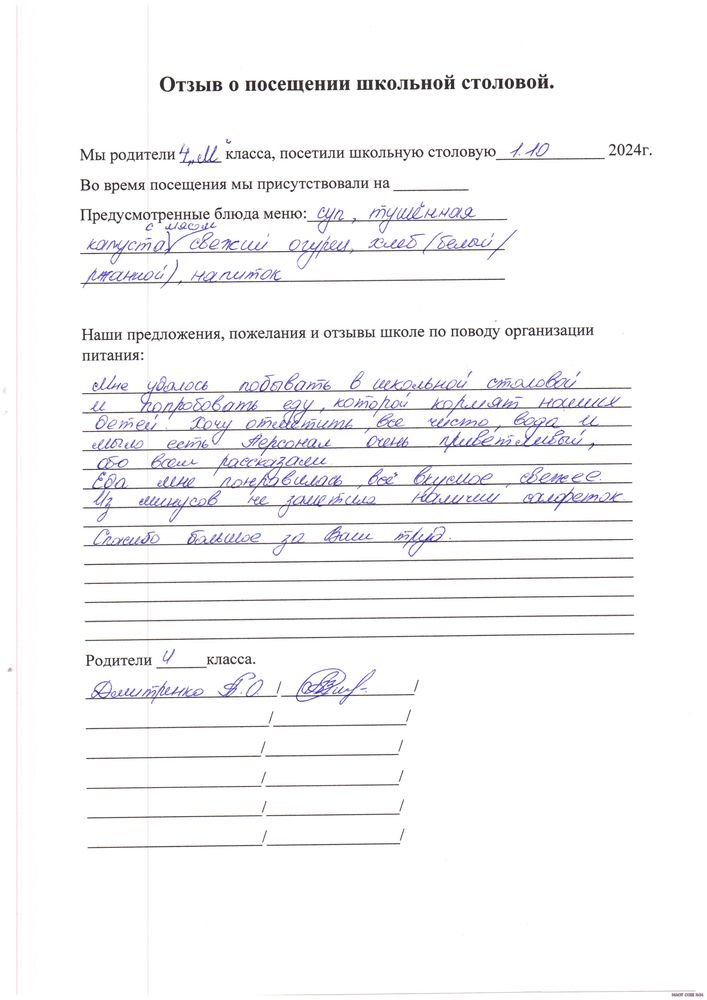 Отзыв о посещении школьной столовой.
Мы родители 4 „М“ класса, посетили школьную столовую 1.10 2024г.
Во время посещения мы присутствовали на
Предусмотренные блюда меню: суп, тушённая
с мясом
капуста, свежий огурец, хлеб (белой/
ржанной), напиток
Наши предложения, пожелания и отзывы школе по поводу организации
питания:
Мне удалось побывать в школьной столовой
и попробовать еду, которой кормят наших
детей. Хочу отметить, все чисто, вода и
мыло есть Персонал очень приветливый,
обо всем рассказали
Еда мне понравилась, всё вкусное, свежее.
Из минусов не заметила наличии салфеток
Спасибо большое за Ваш труд.
Родители 4 класса.
Дмитренко /